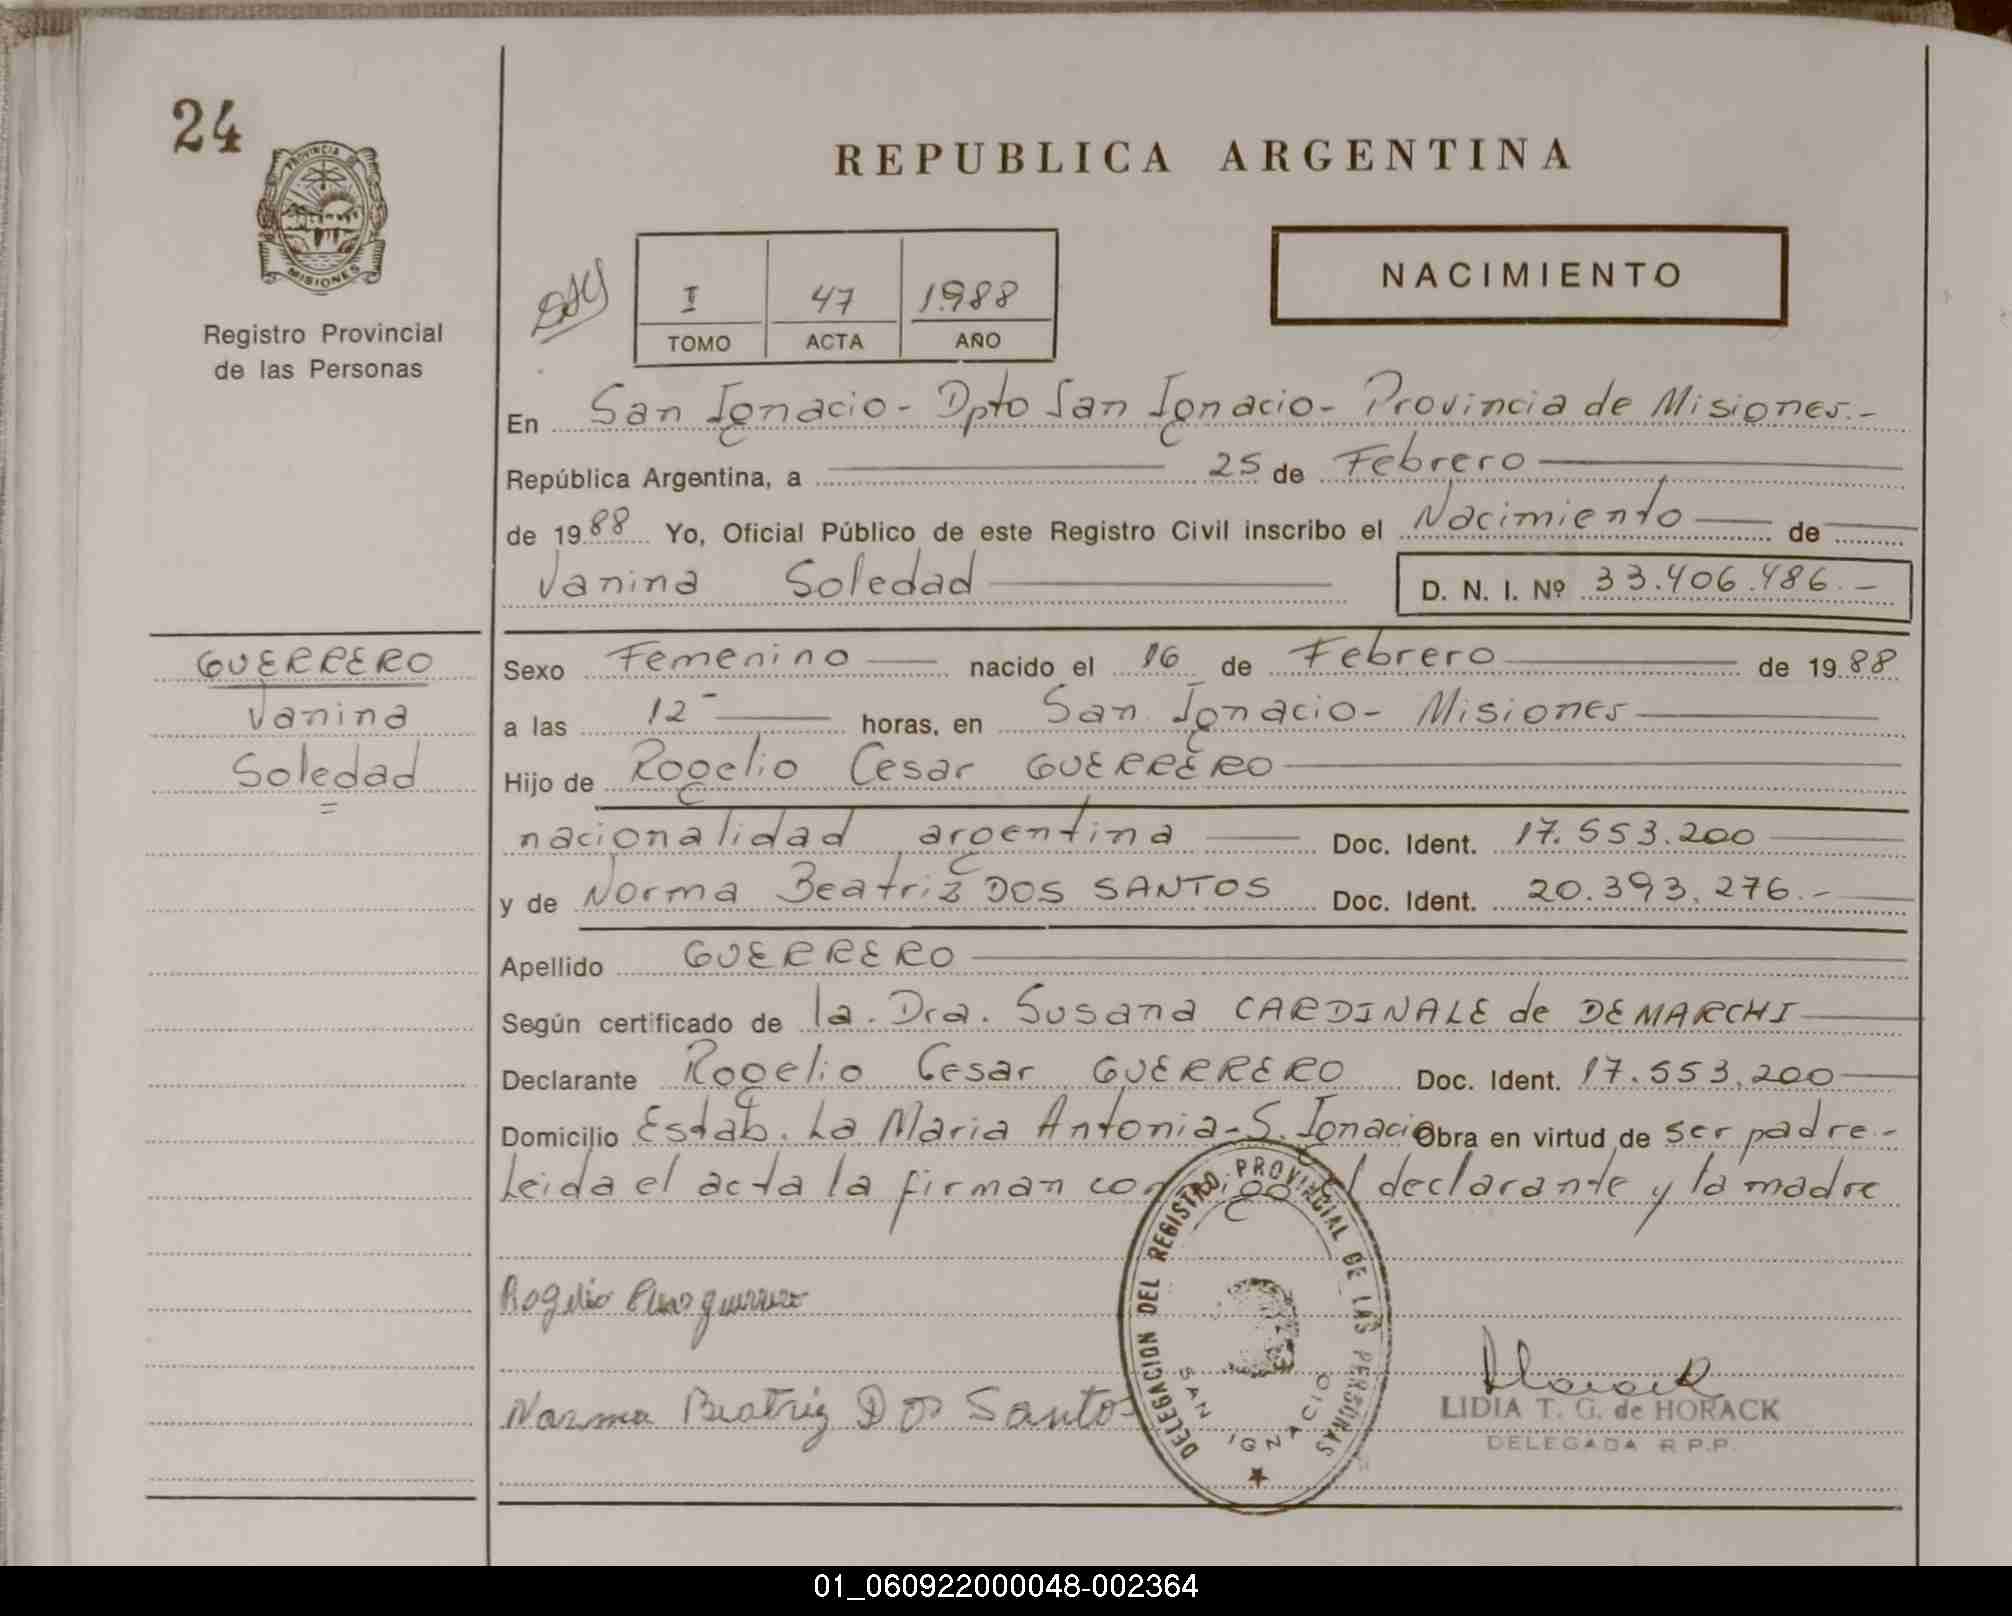 24
PROVINCIA DE
MISIONES
Registro Provincial
de las Personas
REPUBLICA ARGENTINA
I 47 1988
TOMO ACTA AÑO
NACIMIENTO
En San Ignacio - Dpto San Ignacio - Provincia de Misiones.-
República Argentina, a 25 de Febrero
de 1988 Yo, Oficial Público de este Registro Civil inscribo el Nacimiento de
Vanina Soledad D. N. I. Nº 33.406.486.-
GUERRERO
Vanina
Soledad
Sexo Femenino nacido el 16 de Febrero de 1988
a las 12 horas, en San Ignacio - Misiones
Hijo de Rogelio Cesar GUERRERO
nacionalidad argentina Doc. Ident. 17.553.200
y de Norma Beatriz DOS SANTOS Doc. Ident. 20.393.276.-
Apellido GUERRERO
Según certificado de la. Dra. Susana CARDINALE de DEMARCHI
Declarante Rogelio Cesar GUERRERO Doc. Ident. 17.553.200
Domicilio Estab. La Maria Antonia - S. Ignacio Obra en virtud de ser padre.-
Leida el acta la firman conmigo el declarante y la madre
Rogelio Cesar guerrero
Norma Beatriz Dos Santos
DELEGACION DEL REGISTRO PROVINCIAL DE LAS PERSONAS
SAN IGNACIO
LIDIA T. G. de HORACK
DELEGADA R.P.P.
01_060922000048-002364